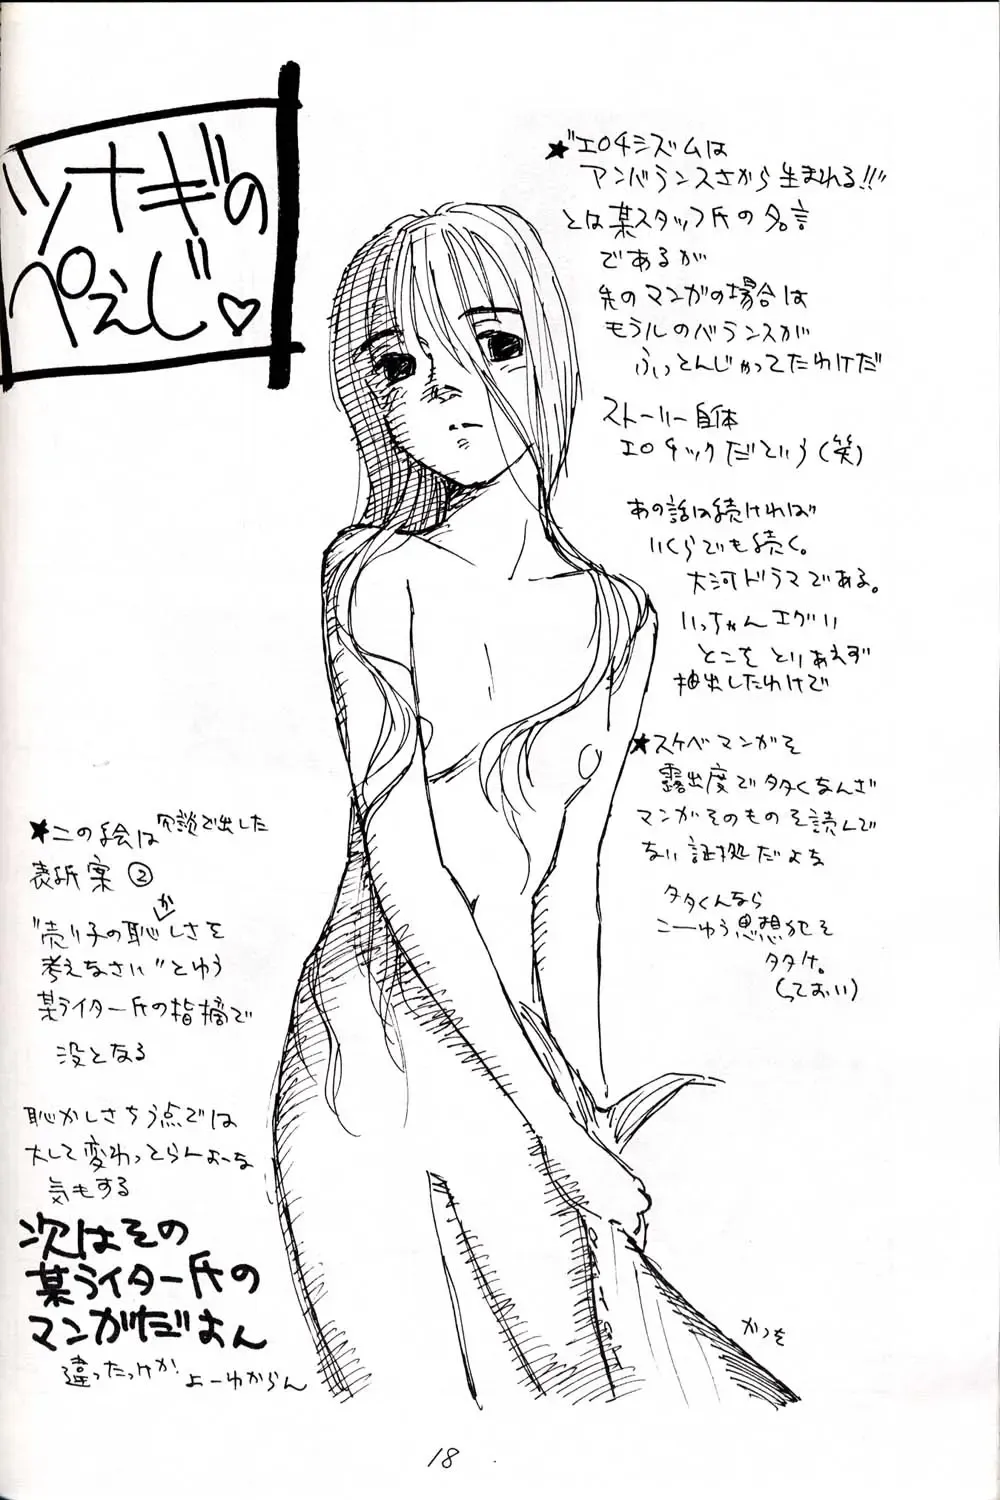 ツナギの
ぺぇじ♡
★"エロチシズムは
アンバランスさから生まれる!!"
とは某スタッフ氏の名言
であるが
先のマンガの場合は
モラルのバランスが
ふっとんじゃってたわけだ
ストーリー自体
エロチックだという(笑)
あの話は続ければ
いくらでも続く。
大河ドラマである。
いっちゃんエグい
とこをとりあえず
抽出したわけで
★スケベマンガを
露出度でタタくなんざ
マンガそのものを読んで
ない証拠だよな
タタくんなら
こーゆう思想犯を
タタけ。
(っておい)
★この絵は冗談で出した
表紙案②
"売り子の恥かしさを
考えなさい"とゆう
某ライター氏の指摘で
没となる
恥かしさちう点では
大して変わってらんよーな
気もする
次はその
某ライター氏の
マンガだおん
違ったっけか? よーわからん
かつを
18